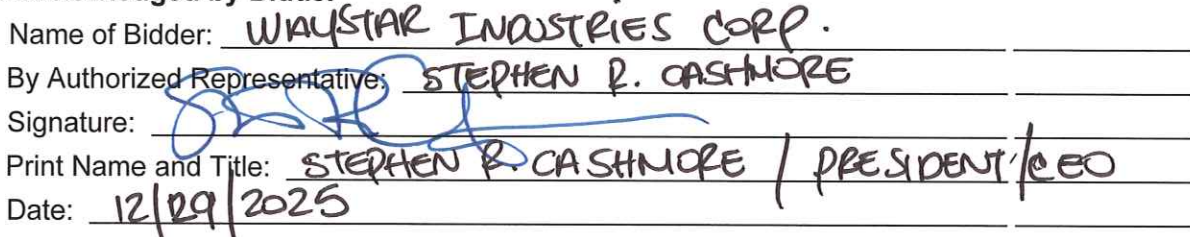 Name of Bidder: WAYSTAR INDUSTRIES CORP.
By Authorized Representative: STEPHEN R. CASHMORE
Signature:
Print Name and Title: STEPHEN R. CASHMORE / PRESIDENT/CEO
Date: 12/29/2025